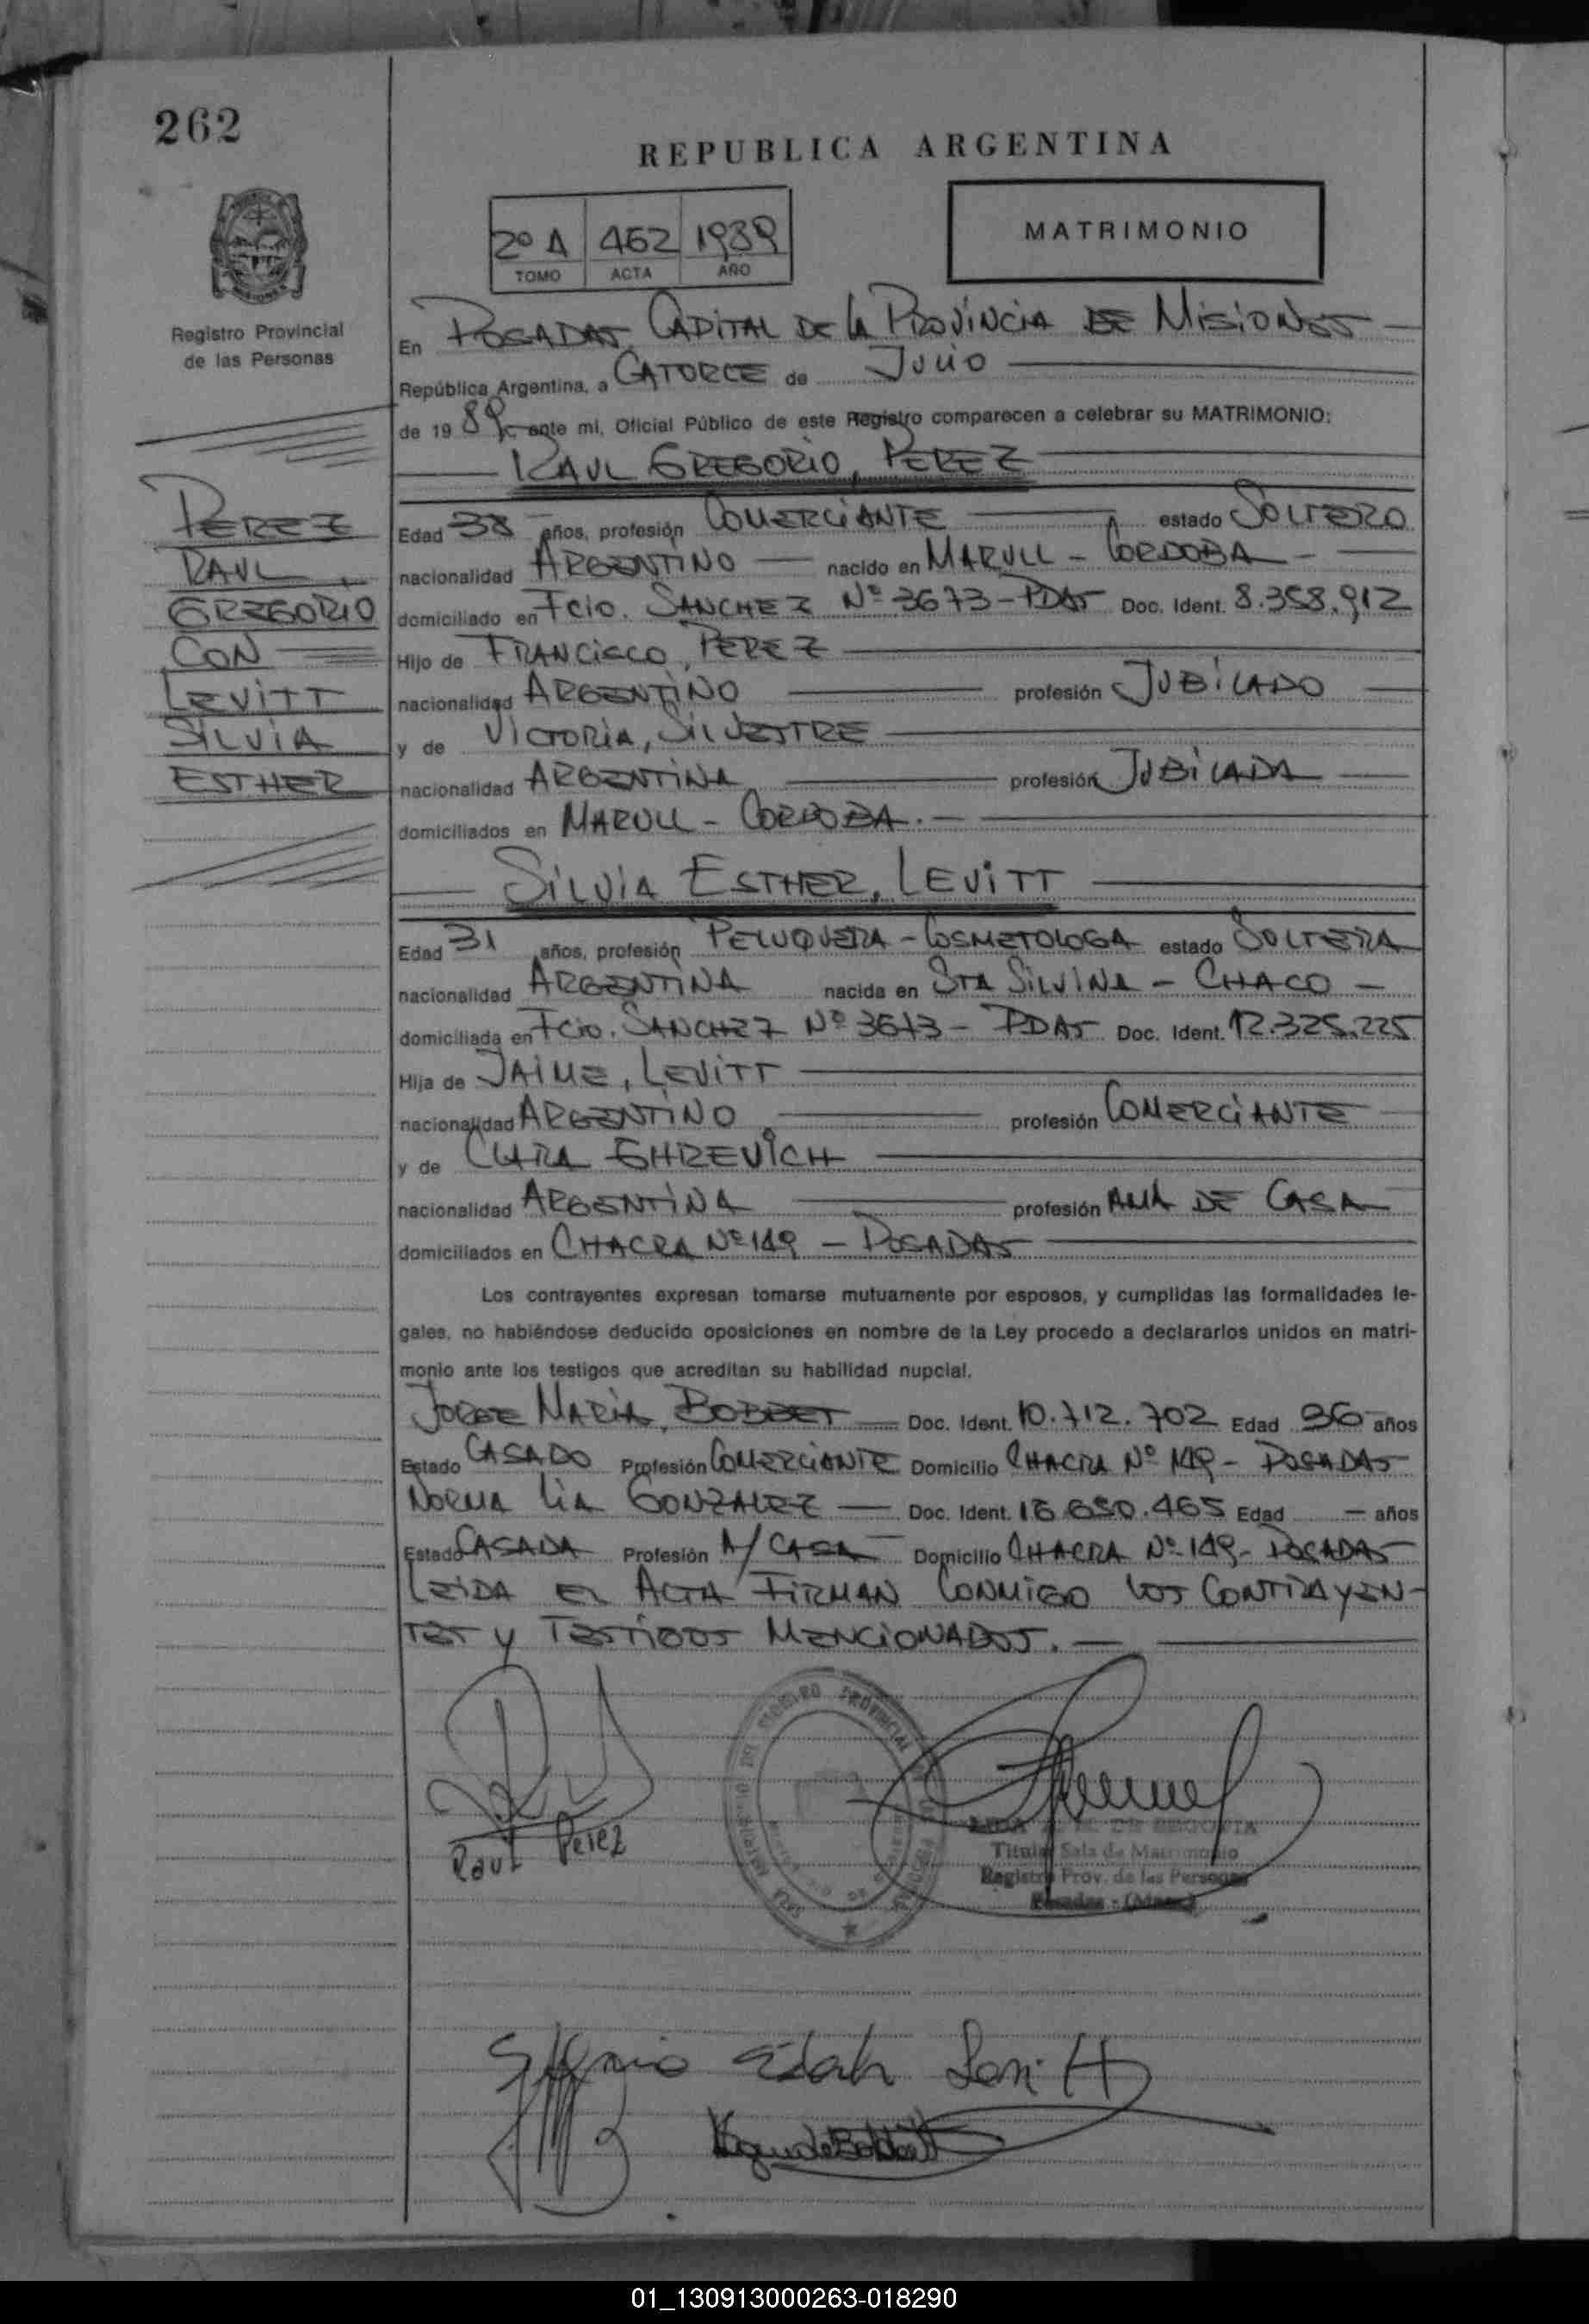 262
REPUBLICA ARGENTINA
2º A 462 1989
TOMO ACTA AÑO
MATRIMONIO
Registro Provincial
de las Personas
En POSADAS, CAPITAL DE LA PROVINCIA DE MISIONES
República Argentina, a CATORCE de JULIO
de 1989, ante mi, Oficial Público de este Registro comparecen a celebrar su MATRIMONIO:
RAUL GREGORIO, PEREZ
PEREZ
RAUL
GREGORIO
CON
LEVITT
SILVIA
ESTHER
Edad 38 años, profesión COMERCIANTE estado SOLTERO
nacionalidad ARGENTINO nacido en MARULL - CORDOBA -
domiciliado en Fcio. SANCHEZ Nº 3673 - PDAS Doc. Ident. 8.358.912
Hijo de FRANCISCO, PEREZ
nacionalidad ARGENTINO profesión JUBILADO
y de VICTORIA, SILVESTRE
nacionalidad ARGENTINA profesión JUBILADA
domiciliados en MARULL - CORDOBA. -
SILVIA ESTHER, LEVITT
Edad 31 años, profesión PELUQUERA - COSMETOLOGA estado SOLTERA
nacionalidad ARGENTINA nacida en STA SILVINA - CHACO -
domiciliada en Fcio. SANCHEZ Nº 3673 - PDAS Doc. Ident. 12.325.225
Hija de JAIME, LEVITT
nacionalidad ARGENTINO profesión COMERCIANTE
y de CLARA GHREVICH
nacionalidad ARGENTINA profesión AMA DE CASA
domiciliados en CHACRA Nº 149 - POSADAS
Los contrayentes expresan tomarse mutuamente por esposos, y cumplidas las formalidades le-
gales, no habiéndose deducido oposiciones en nombre de la Ley procedo a declararlos unidos en matri-
monio ante los testigos que acreditan su habilidad nupcial.
JORGE MARIA, BOBBET Doc. Ident. 10.712.702 Edad 36 años
Estado CASADO Profesión COMERCIANTE Domicilio CHACRA Nº 149 - POSADAS
NORMA LIA GONZALEZ Doc. Ident. 16.650.465 Edad - años
Estado CASADA Profesión A/ CASA Domicilio CHACRA Nº 149 - POSADAS
LEIDA EL ACTA FIRMAN CONMIGO LOS CONTRAYEN-
TES Y TESTIGOS MENCIONADOS. -
Raul Perez
REGISTRO PROVINCIAL
Titular Sala de Matrimonio
Registro Prov. de las Personas
Posadas - (Mnes.)
Silvia Esther Levitt
01_130913000263-018290